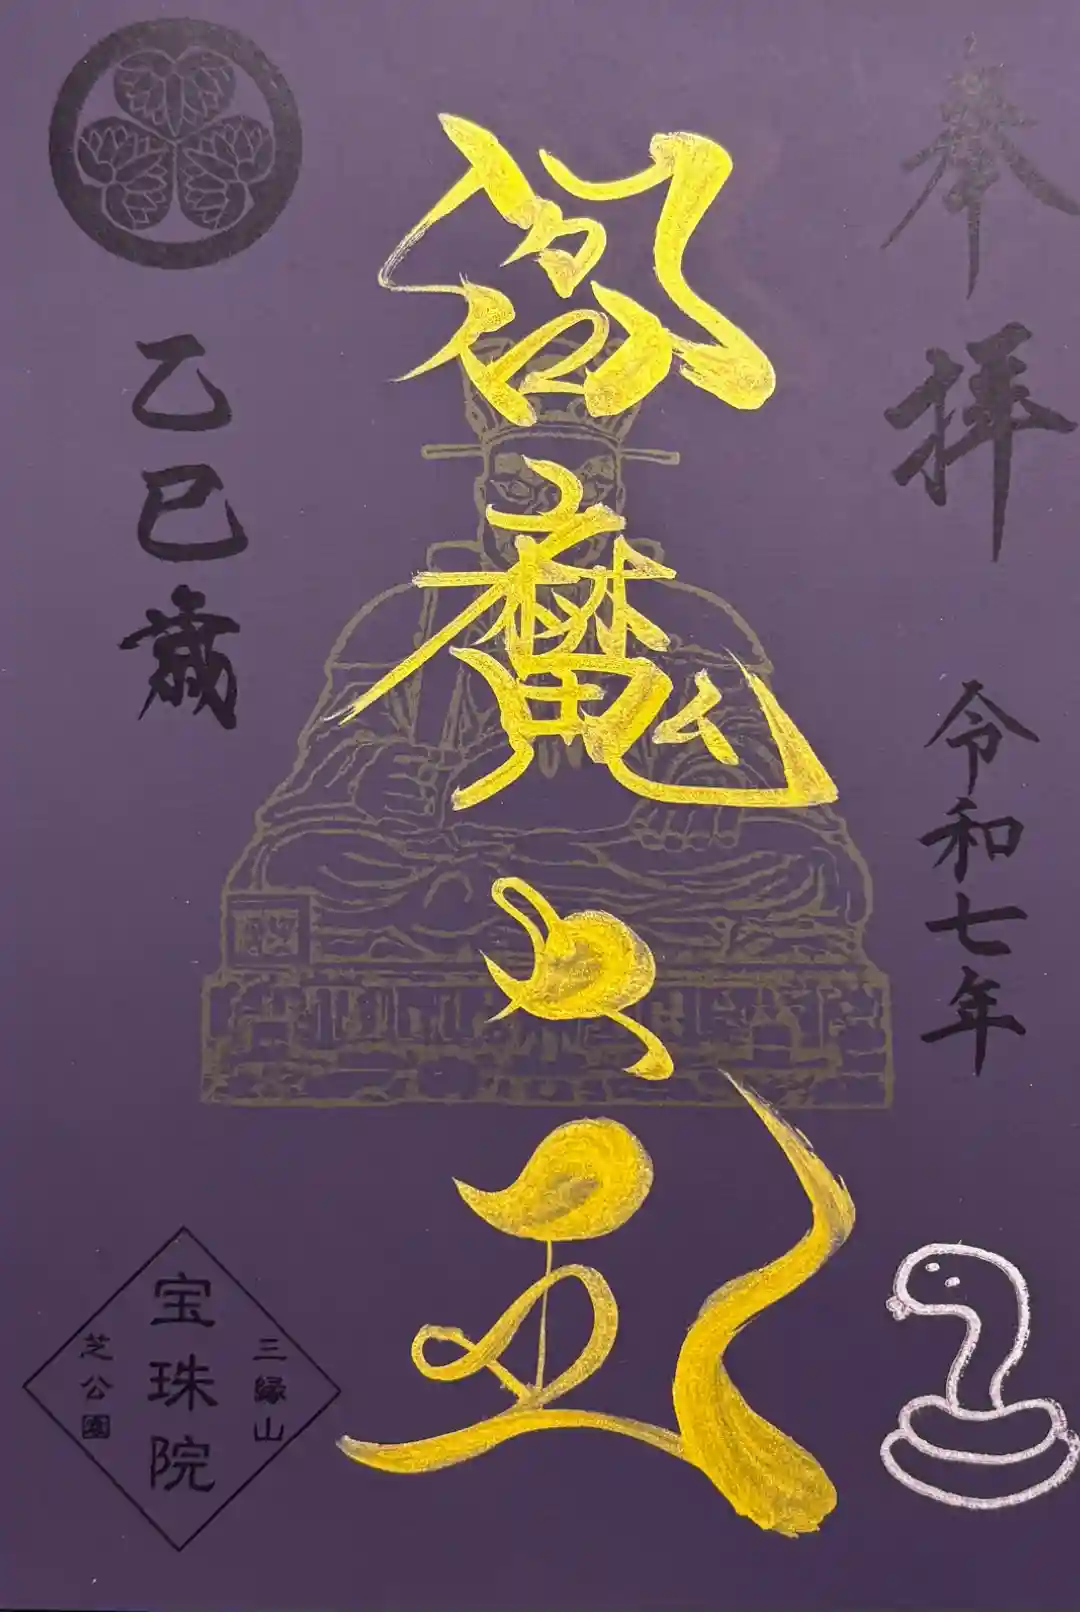 奉拝
令和七年
魔
乙巳歳
三縁山
宝珠院
芝公園